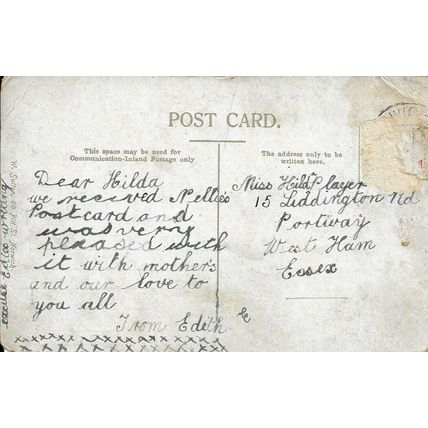 POST CARD.
This space may be used for
Communication-Inland Postage only
The address only to be
written here.
Dear Hilda
we recived Nellies
Postcard and
was very
pleased with
it with mother's
and our love to
you all
From Edith
xxxxxxxxxxxxxxxxxx
xxxxxxxxxxxxxxxx
excuse Edies writing
Miss Hilda Player
15 Liddington Rd
Portway
West Ham
Essex